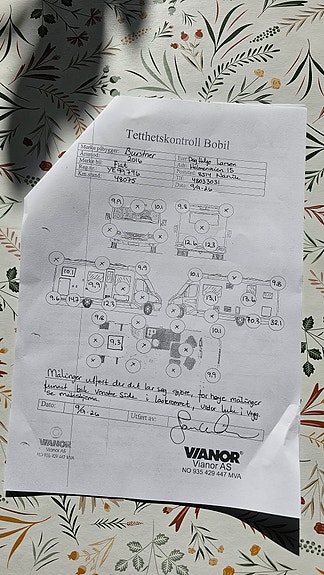 Tetthetskontroll Bobil
Merke påbygger: Burstner
Årsmodell: 2016
Merke bil: Fiat
Reg.nr: VE 97796
Km.stand: 48075
Eier: Larsen
Adr: 15
Poststed: 8514 Narvik
48053031
Dato: 9/4-26
9.9 10.1 9.8
12.6 12.3
9.9 9.9
10.1 9.9 10.1 13.1 13.6 9.8
9.6 14.7 12.3 70.3 32.1
9.8 10.1
9.3
9.9
Målinger utført der det lar seg gjøre, for høye målinger
funnet bak venstre side i lasterommet, under luke i vegg.
Se målskjema.
Dato: 9/4-26
Utført av:
VIANOR
Vianor AS
NO 935 429 447 MVA
VIANOR
Vianor AS
NO 935 429 447 MVA